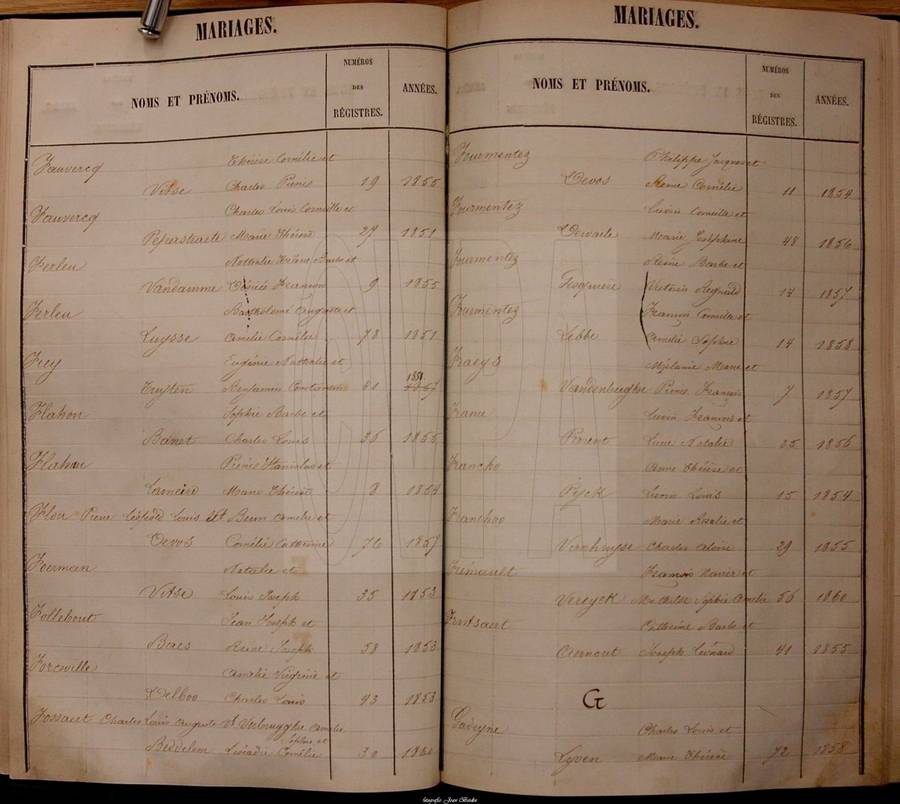 MARIAGES.
NOMS ET PRÉNOMS. NUMÉROS DES RÉGISTRES. ANNÉES.
Fauvercq Thérèse Cornélie et
Vitse Charles Pierre 19 1855
Fauvercq Charles Louis Corneille et
Peperstraete Marie Thérèse 27 1851
Ferleu Nathalie Barbe et
Vandamme François 9 1855
Ferleu Bartholomé Auguste et
Luysse Amélie Cornélie 78 1851
Fey Eugénie Nathalie et
Benjamin 1851
Flahou Sophie Barbe et
Banet Charles Louis 36 1855
Flahou Pierre Stanislas et
Lameire Marie Thérèse 8 1854
Flou Pierre Léopold Louis Vf Beun Amélie et
Devos Cornélie Catherine 76 1857
Foerman Natalie et
Vitse Louis Joseph 35 1853
Follebout Jean Joseph et
Baes Reine Joseph 58 1853
Forceville Amélie Virginie et
Delboo Charles Louis 43 1853
Fossaert Charles Louis Auguste Vf Amélie
Sophie et
Beddelem Léocadie Cornélie 30 1860
MARIAGES.
NOMS ET PRÉNOMS. NUMÉROS DES RÉGISTRES. ANNÉES.
Fourmentez Philippe Jacques et
Devos Reine Cornélie 11 1854
Fourmentez Livin Corneille et
Dewaele Marie Joséphine 48 1856
Fourmentez Reine Barbe et
Victorin 17 1857
Fourmentez François Corneille et
Lebbe Amélie Sophie 14 1858
Fraeys Mélanie Marie et
Vandenberghe Pierre François 7 1857
Livin François et
Perent Lucie Natalie 1856
Francke Anne Thérèse et
Pyck Livin Louis 15 1854
Franchoo Marie Rosalie et
Vermhuyse Charles 29 1855
Frémault François Xavier et
Vereyck Mathilde Sophie Amélie 55 1860
Catherine Barbe et
Aernout Joseph Léonard 41 1855
G
Gadeyne Charles Louis et
Lyven Marie Thérèse 72 1858